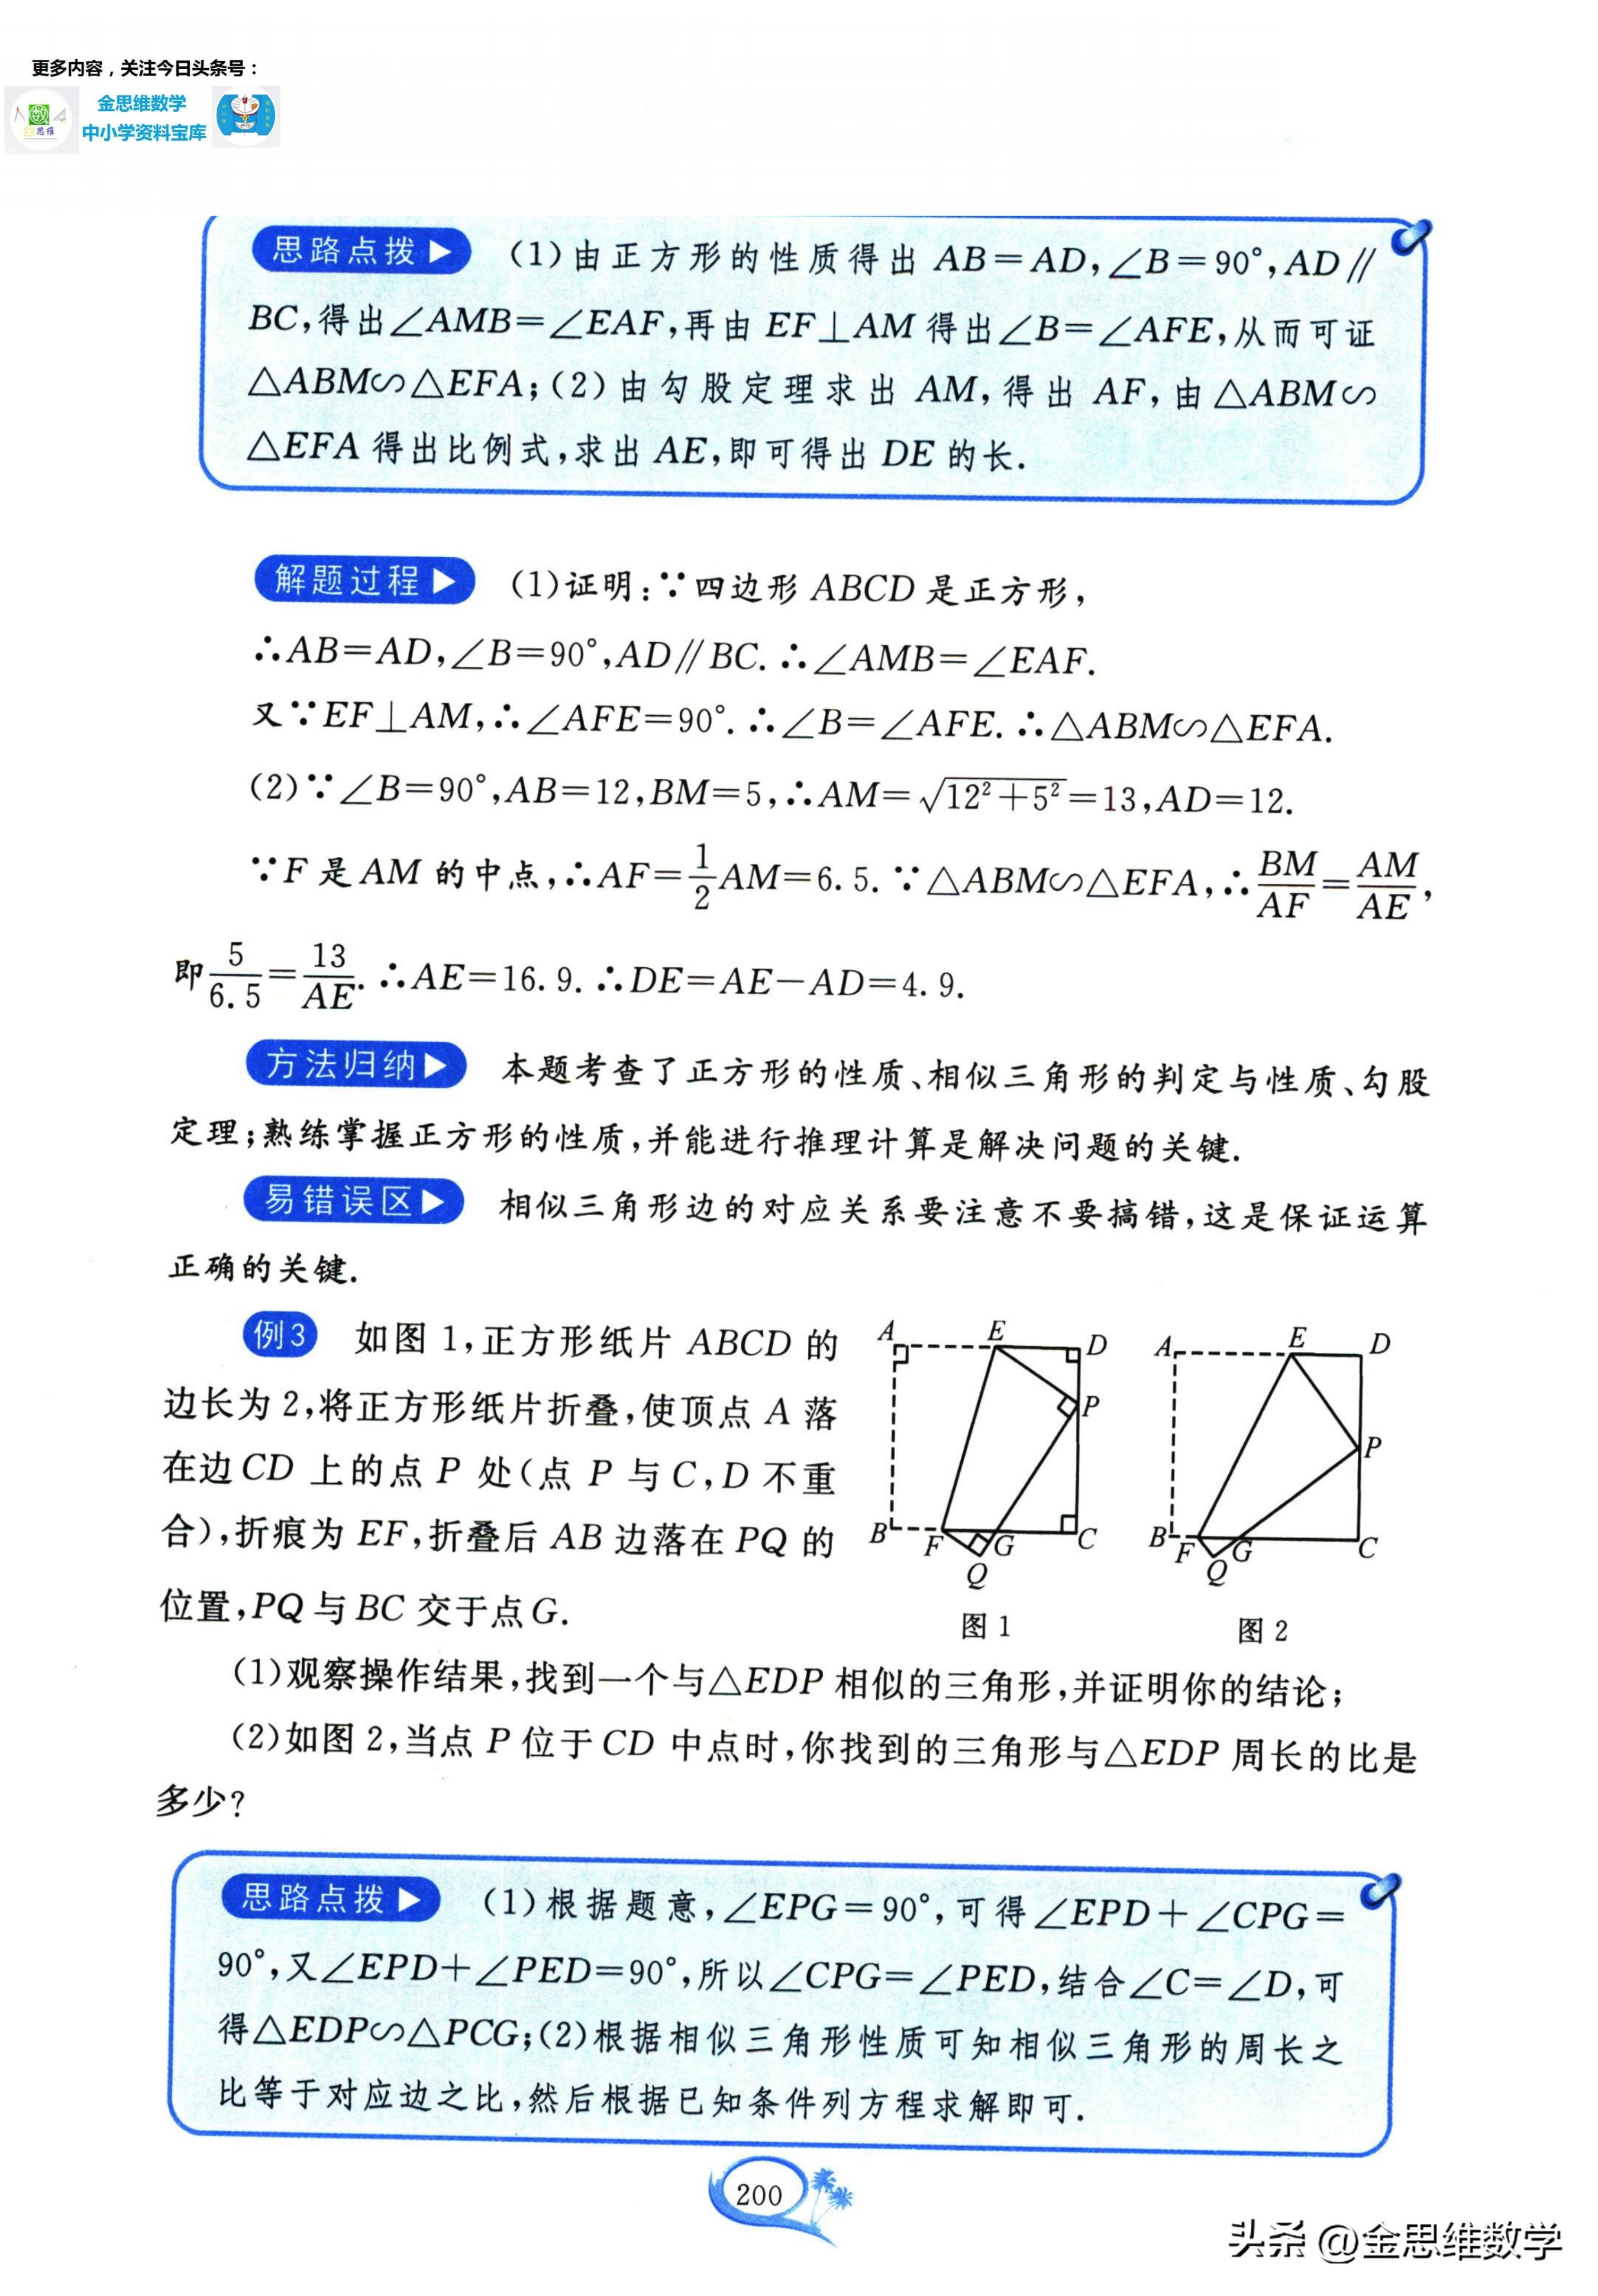 更多内容，关注今日头条号：
金思维数学
中小学资料宝库
思路点拨▶ (1)由正方形的性质得出 AB=AD,∠B=90°,AD∥
BC,得出∠AMB=∠EAF,再由 EF⊥AM 得出∠B=∠AFE,从而可证
△ABM∽△EFA;(2)由勾股定理求出 AM,得出 AF,由△ABM∽
△EFA 得出比例式,求出 AE,即可得出 DE 的长.
解题过程▶ (1)证明:∵四边形 ABCD 是正方形,
∴AB=AD,∠B=90°,AD∥BC.∴∠AMB=∠EAF.
又∵EF⊥AM,∴∠AFE=90°.∴∠B=∠AFE.∴△ABM∽△EFA.
(2)∵∠B=90°,AB=12,BM=5,∴AM=√(12²+5²)=13,AD=12.
∵F 是 AM 的中点,∴AF=1/2AM=6.5.∵△ABM∽△EFA,∴BM/AF=AM/AE,
即5/6.5=13/AE.∴AE=16.9.∴DE=AE-AD=4.9.
方法归纳▶ 本题考查了正方形的性质、相似三角形的判定与性质、勾股
定理;熟练掌握正方形的性质,并能进行推理计算是解决问题的关键.
易错误区▶ 相似三角形边的对应关系要注意不要搞错,这是保证运算
正确的关键.
例3 如图 1,正方形纸片 ABCD 的
边长为 2,将正方形纸片折叠,使顶点 A 落
在边 CD 上的点 P 处(点 P 与 C,D 不重
合),折痕为 EF,折叠后 AB 边落在 PQ 的
位置,PQ 与 BC 交于点 G.
A E D
P
B F G C
Q
图 1
A E D
P
B F G C
Q
图 2
(1)观察操作结果,找到一个与△EDP 相似的三角形,并证明你的结论;
(2)如图 2,当点 P 位于 CD 中点时,你找到的三角形与△EDP 周长的比是
多少?
思路点拨▶ (1)根据题意,∠EPG=90°,可得∠EPD+∠CPG=
90°,又∠EPD+∠PED=90°,所以∠CPG=∠PED,结合∠C=∠D,可
得△EDP∽△PCG;(2)根据相似三角形性质可知相似三角形的周长之
比等于对应边之比,然后根据已知条件列方程求解即可.
200
头条 @金思维数学